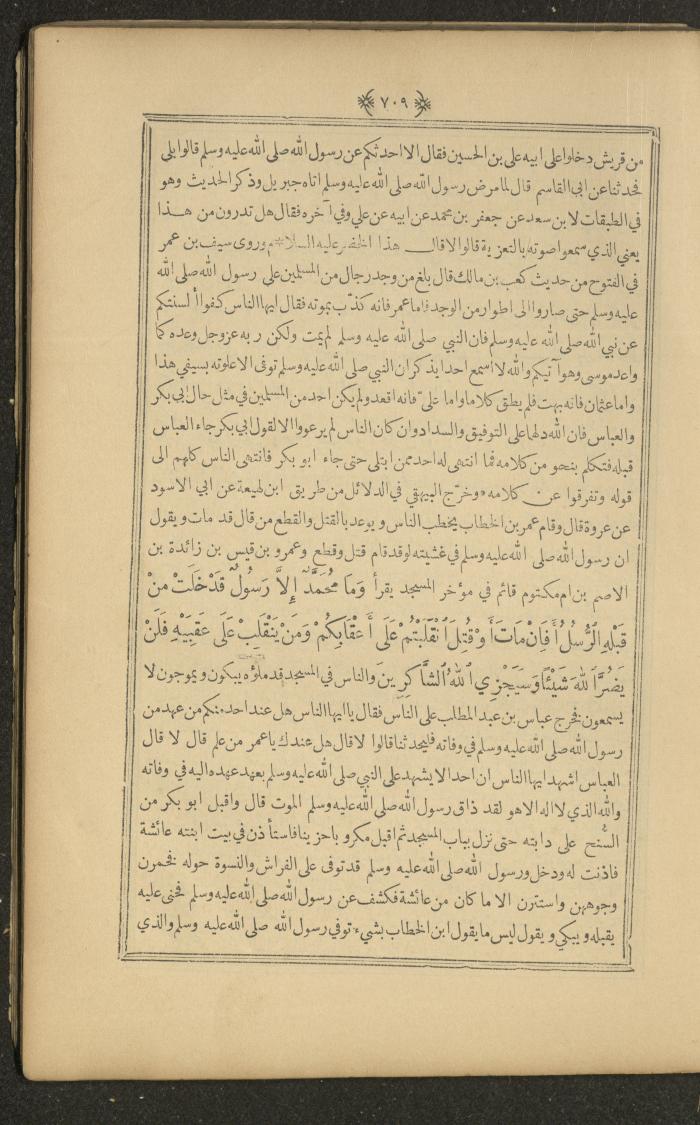 ٧٠٩
من قريش دخلوا على ابيه علي بن الحسين فقال الا احدثكم عن رسول الله صلى الله عليه وسلم قالوا بلى
فحدثنا عن ابي القاسم قال لما مرض رسول الله صلى الله عليه وسلم اتاه جبريل وذكر الحديث وهو
في الطبقات لابن سعد عن جعفر بن محمد عن ابيه عن علي وفي آخره فقال هل تدرون من هذا
يعني الذي سمعوا صوته بالتعزية قالوا لا قال هذا الخضر عليه السلام وروى سيف بن عمر
في الفتوح من حديث كعب بن مالك قال بلغ من وجد رجال من المسلمين على رسول الله صلى الله
عليه وسلم حتى صاروا الى اطوار من الوجد فاما عمر فانه كذّب بموته فقال ايها الناس كفوا ألسنتكم
عن نبي الله صلى الله عليه وسلم فان النبي صلى الله عليه وسلم لم يمت ولكن ربه عز وجل وعده كما
واعد موسى وهو آتيكم والله لا اسمع احدا يذكر ان النبي صلى الله عليه وسلم توفى الا علوته بسيفي هذا
واما عثمان فانه بهت فلم يطق كلاما واما عليّ فانه اقعد ولم يكن احد من المسلمين في مثل حال ابي بكر
والعباس فان الله دلهما على التوفيق والسداد وان كان الناس لم يرعووا الا لقول ابي بكر جاء العباس
قبله فتكلم بنحو من كلامه فما انتهى له احد ممن ابتلى حتى جاء ابو بكر فانتهى الناس كلهم الى
قوله وتفرقوا عن كلامه * وخرّج البيهقي في الدلائل من طريق ابن لهيعة عن ابي الاسود
عن عروة قال وقام عمر بن الخطاب يخطب الناس ويوعد بالقتل والقطع من قال قد مات ويقول
ان رسول الله صلى الله عليه وسلم في غشيته لو قد قام قتل وقطع وعمرو بن قيس بن زائدة بن
الاصم بن ام مكتوم قائم في مؤخر المسجد يقرأ وَمَا مُحَمَّدٌ إِلاَّ رَسُولٌ قَدْ خَلَتْ مِنْ
قَبْلِهِ ٱلرُّسُلُ أَفَإِنْ مَاتَ أَوْ قُتِلَ ٱنْقَلَبْتُمْ عَلَى أَعْقَابِكُمْ وَمَنْ يَنْقَلِبْ عَلَى عَقِبَيْهِ فَلَنْ
يَضُرَّ ٱللهَ شَيْئًا وَسَيَجْزِي ٱللهُ ٱلشَّاكِرِينَ والناس في المسجد قد ملؤه يبكون ويموجون لا
يسمعون فخرج عباس بن عبد المطلب على الناس فقال يا ايها الناس هل عند احد منكم من عهد من
رسول الله صلى الله عليه وسلم في وفاته فليحدثنا قالوا لا قال هل عندك يا عمر من علم قال لا قال
العباس اشهد ايها الناس ان احدا لا يشهد على النبي صلى الله عليه وسلم بعهد عهده اليه في وفاته
والله الذي لا اله الا هو لقد ذاق رسول الله صلى الله عليه وسلم الموت قال واقبل ابو بكر من
السُّنح على دابته حتى نزل بباب المسجد ثم اقبل مكروبا حزينا فاستأذن في بيت ابنته عائشة
فاذنت له ودخل ورسول الله صلى الله عليه وسلم قد توفى على الفراش والنسوة حوله فخمرن
وجوههن واستترن الا ما كان من عائشة فكشف عن رسول الله صلى الله عليه وسلم فحنى عليه
يقبله ويبكي ويقول ليس ما يقول ابن الخطاب بشيء توفي رسول الله صلى الله عليه وسلم والذي